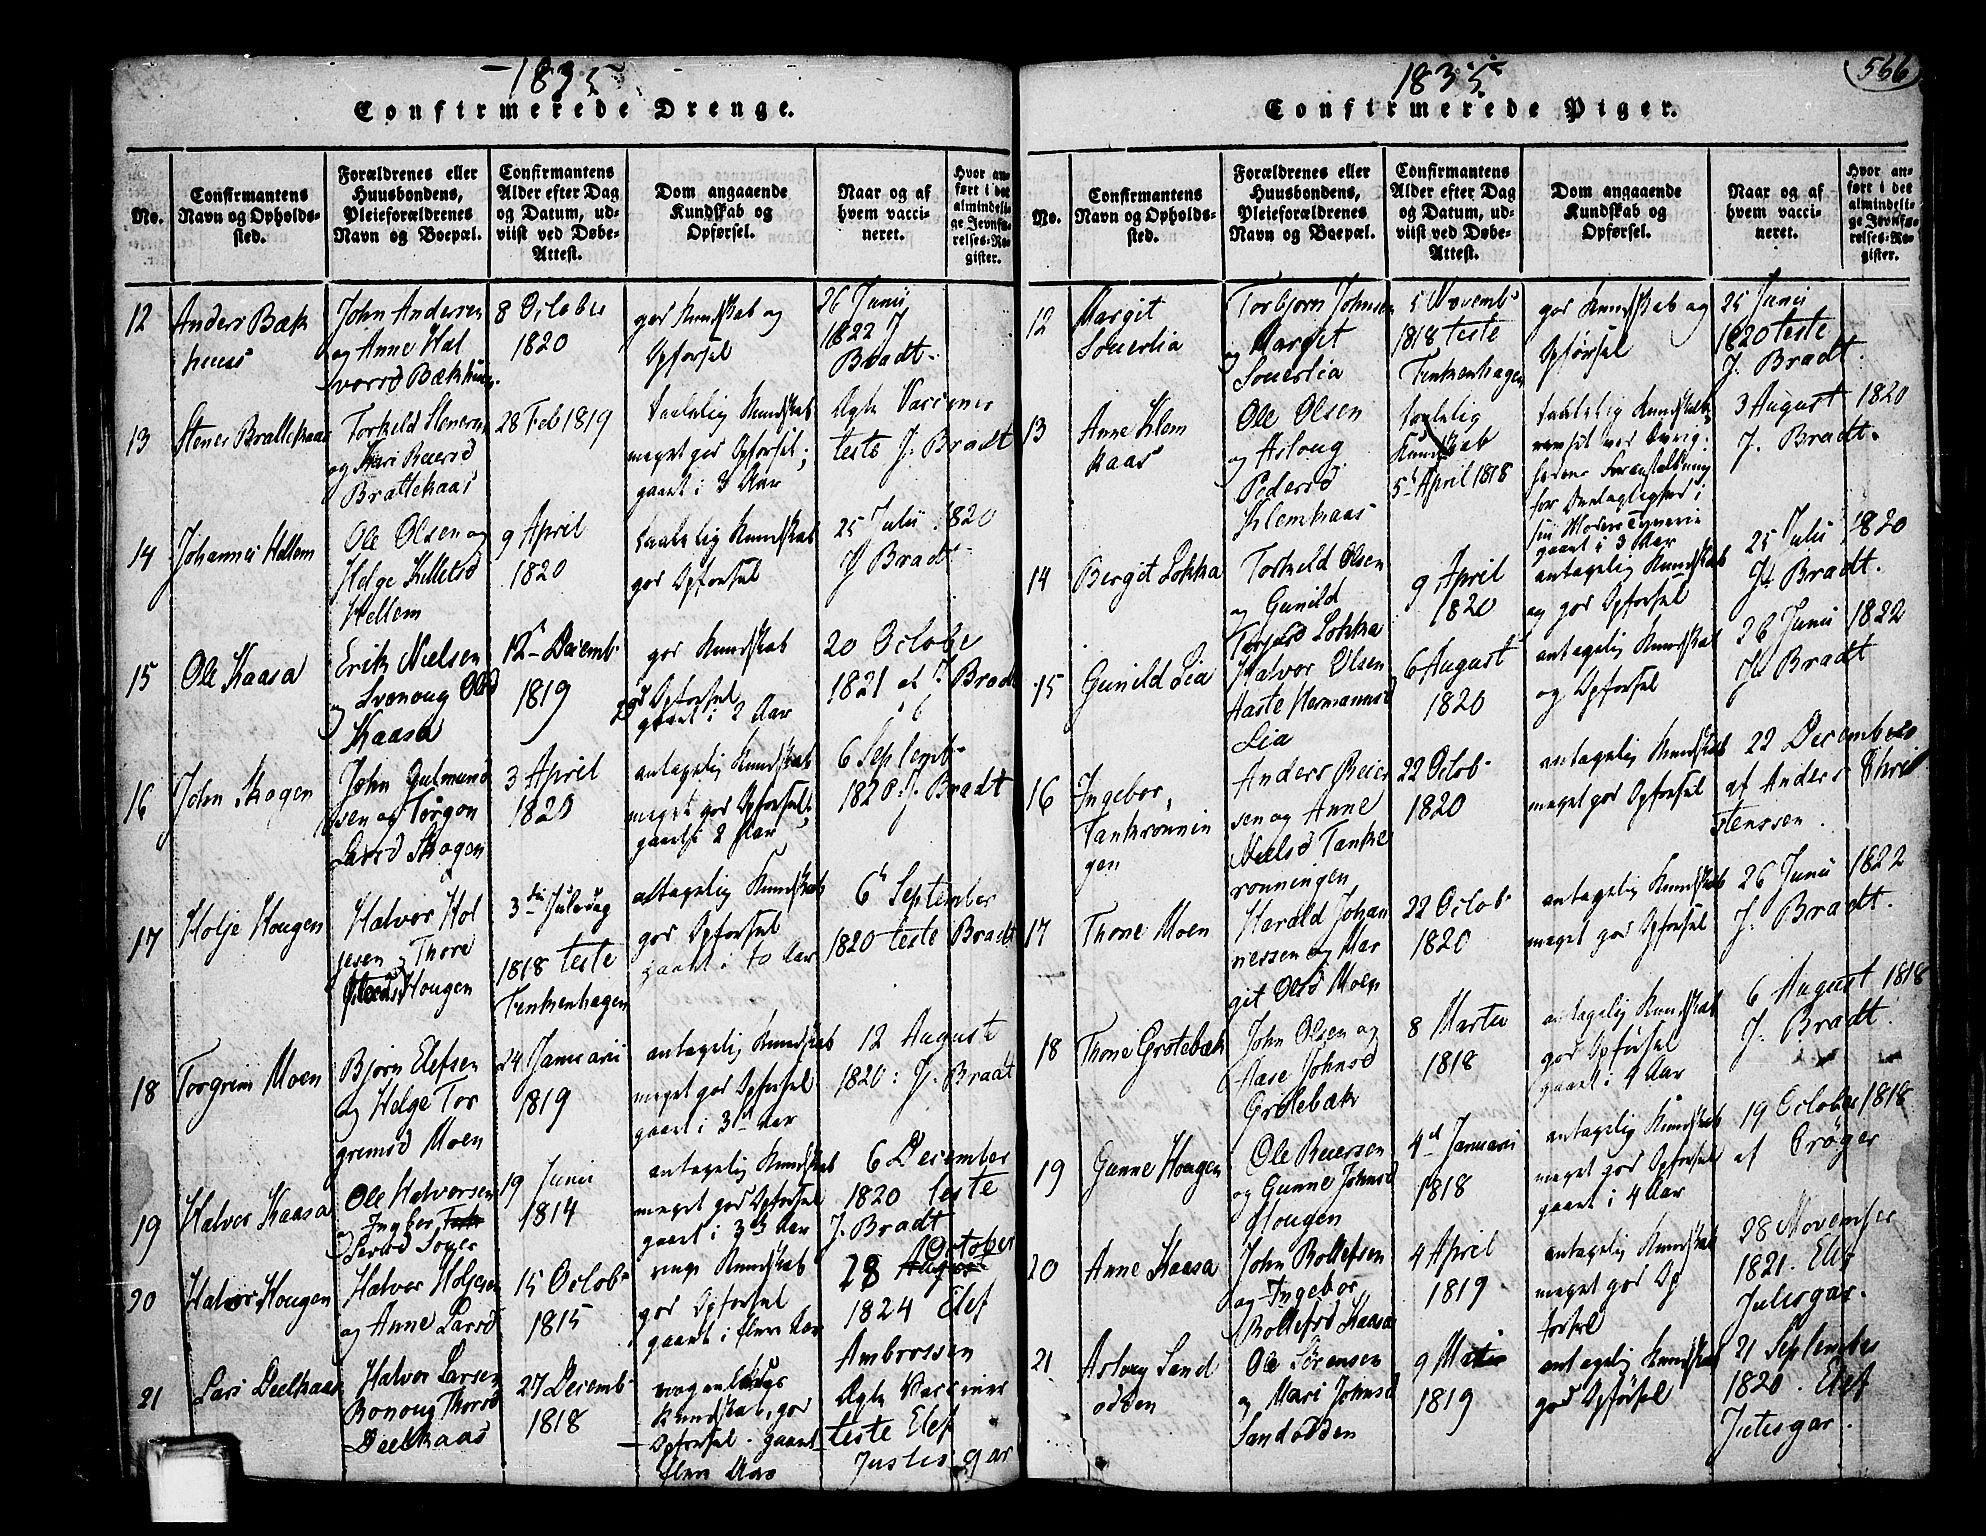 1835
Confirmerede Drenge.
No.
Confirmantens
Navn og Opholds-
sted.
Forældrenes eller
Huusbondens,
Pleieforældrenes
Navn og Boepæl.
Confirmantens
Alder efter Dag
og Datum, ud-
viist ved Døbe-
Attest.
Dom angaaende
Kundskab og
Opførsel.
Naar og af
hvem vacci-
neret.
Hvor an-
ført i det
almindeli-
ge Jevnfø-
relses-Re-
gister.
12
Anders Bæk
huus
John Andersen
og Anne Hal
vorsd Bækhuus
8 Octobr
1820
god Kundskab og
Opførsel
26 Junii
1822 J
Bradt
13
Stener Brattekaas
Torkeld Steners
og Kari Reiersd
Brattekaas
28 Feb 1819
taalelig Kundskab
meget god Opførsel;
gaaet i 3 Aar
Ægte Vacciner
teste J. Bradt
14
Johannes Hellem
Ole Olsen og
Helge Kittelsd
Hellem
9 April
1820
taalelig Kundskab
god Opførsel
25 Julii 1820
J Bradt
15
Ole Kaasa
Erik Nielsen
og Svonoug Olsd
Kaasa
12 Decemb
1819
god Kundskab
og Opførsel
gaaet i 2 Aar
20 Octobe
1821 af J Bradt
16
John Skogen
John Gulmund
sen og Torgon
Larsd Skogen
3 April
1820
antagelig Kundskab
meget god Opførsel;
gaaet 2 Aar
6 Septemb
1820 J. Bradt
17
Holje Hougen
Halvor Hol
jesen, Thore
Hougen
3die Juledag
1818 teste
Tenkenhagen
antagelig Kundskab
god Opførsel
gaaet i to Aar
6 September
1820 teste Bradt
18
Torgrim Moen
Bjørn Elefsen
og Helge Tor
gremsd Moen
24 Januarii
1819
antagelig Kundskab
meget god Opførsel
gaaet i 3 Aar
12 August
1820: J. Bradt
19
Halvor Kaasa
Ole Halvorsen
Ingebor
19 Junii
1814
antagelig Kundskab
meget god Opførsel
gaaet i 3 Aar
6 December
1820 teste
J. Bradt
20
Halvor Hougen
Halvor Holjesen
og Anne Larsd
15 Octob
1815
ringe Kundskab
god Opførsel
gaaet i flere Aar
October
28
1824 Elef
Ambrossen
21
Lars Deelkaas
Halvor Larsen
Bonoug Thorsd
Deelkaas
27 Decemb
1818
Kundskab, god
Opførsel. gaaet
flere Aar
Ægte Vacciner
teste Elef
Justisgar
1835
566
Confirmerede Piger.
No.
Confirmantens
Navn og Opholds-
sted.
Forældrenes eller
Huusbondens,
Pleieforældrenes
Navn og Boepæl.
Confirmantens
Alder efter Dag
og Datum, ud-
viist ved Døbe-
Attest.
Dom angaaende
Kundskab og
Opførsel.
Naar og af
hvem vacci-
neret.
Hvor an-
ført i det
almindeli-
ge Jevnfø-
relses-Re-
gister.
12
Margit
Souerlia
Torbjørn Johnsen
og Margit
Souerlia
5 Novemb
1818 teste
Tenkenhagen
god Kundskab og
Opførsel
25 Junii
1820 teste
J. Bradt.
13
Anne Klem
kaas
Ole Olsen
og Asloug
Pedersd
Klemkaas
taalelig
Kundskab
5 April 1818
taalelig Kundskab
gaaet i 3 Aar
3 August 1820
J. Bradt.
14
Bergit Lokka
Torkeld Olsen
og Gunild
Lokka
9 April
1820
antagelig Kundskab
og god Opførsel
25 Julii 1820
J. Bradt.
15
Gunild Lia
Halvor Olsen
Aaste Hermannsd
Lia
6 August
1820
antagelig Kundskab
og Opførsel
26 Junii 1822
J. Bradt
16
Ingebor
Tankrønnin
gen
Anders Reier
sen og Anne
Nielsd Tanke
rønningen
22 Octob
1820
antagelig Kundskab
meget god Opførsel
22 December
af Anders Chri
stenssen.
17
Thone Moen
Harald Johan
nessen og Mar
git Olsd Moen
22 Octob
1820
antagelig Kundskab
meget god Opførsel
26 Junii 1822
J. Bradt.
18
Thone Grotebæk
John Olsen og
Aase Johnsd
Grotebæk
8 Martii
1818
antagelig Kundskab
god Opførsel
gaaet i 4 Aar
6 August 1818
J. Bradt
19
Gunne Hougen
Ole Reiersen
og Gunne Johnsd
Hougen
4 Januarii
1818
antagelig Kundskab
meget god Opførsel
gaaet i 4 Aar
19 Octobe 1818
af Crøger
20
Anne Kaasa
John Rollefsen
og Ingebor
Rollefsd Kaasa
4 April
1819
antagelig Kundskab
meget god Op
førsel
28 November
1821. Elef
Julesgar.
21
Asloug Sand
odden
Ole Sørensen
og Mari Johnsd
Sandodden
9 Martii
1819
antagelig Kundskab
god Opførsel
21 September
1820. Elef
Jutesgar.